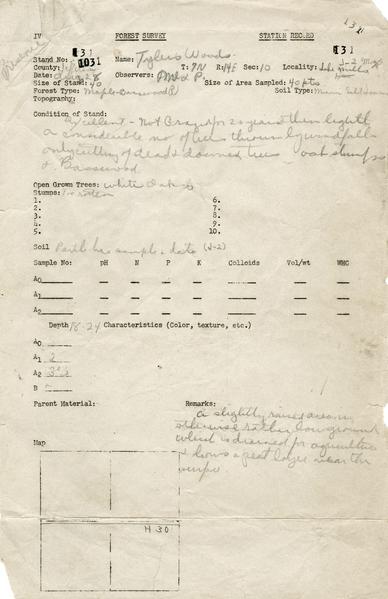 131
Preserve
IV FOREST SURVEY STATION RECORD
131 131
Stand No: 1031 Name: Tylers Woods 1-2 m
County: Jefferson T: 7N R: 14E Sec: 10 Locality: Lake Mills
Date: Aug 28 Observers: & P.
Size of Stand: 40 Size of Area Sampled: 40 pts
Forest Type: Maple-Basswood Soil Type: Miami Silt Loam
Topography:
Condition of Stand:
Excellent - Not Grazed for 20 years then lightly
a considerable no of trees thrown by windfalls
only cutting of dead & downed trees - oak stumps
& Basswood
Open Grown Trees: White Oak
Stumps: Too rotten
1. 6.
2. 7.
3. 8.
4. 9.
5. 10.
Soil has sample & data (J-2)
Sample No: pH N P K Colloids Vol/wt WHC
A0
A1
A2
Depth 18-24 Characteristics (Color, texture, etc.)
A0
A1 2
A2
B
Parent Material: Remarks:
A slightly raised area in
otherwise rather low ground
which is drained for agriculture
& shows a peat layer near the
surface
Map
H 30